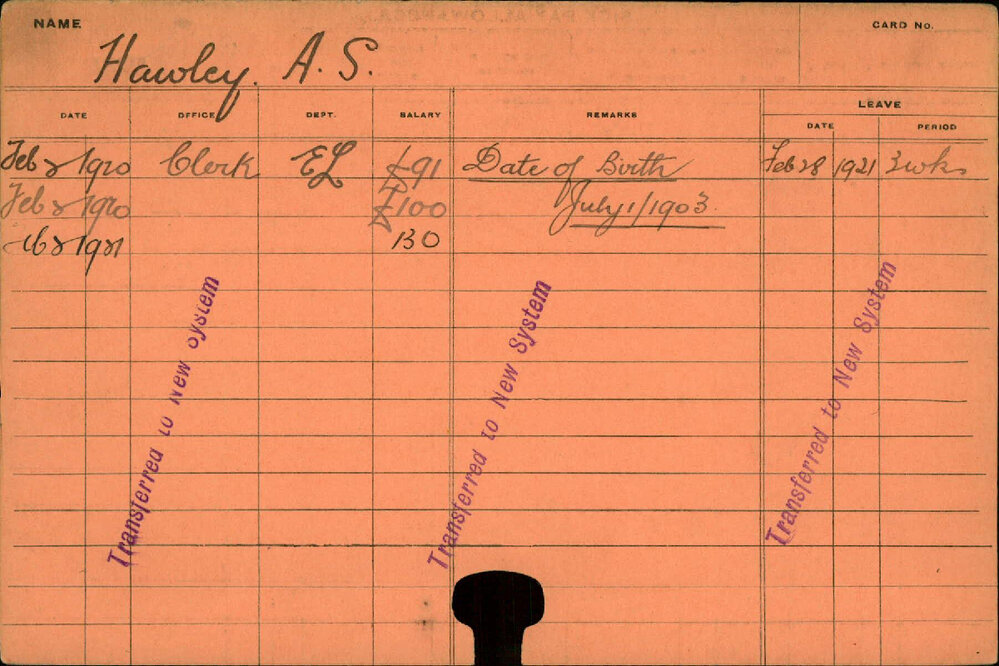 NAME
CARD No.
Hawley. A. S.
LEAVE
DATE OFFICE DEPT. SALARY REMARKS DATE PERIOD
Feb 2 1920 Clerk EL £91 Date of Birth Feb 28 1921 3 wks
Feb 2 1920 £100 July 1/1903
Feb 2 1921 130
Transferred to New System
Transferred to New System
Transferred to New System